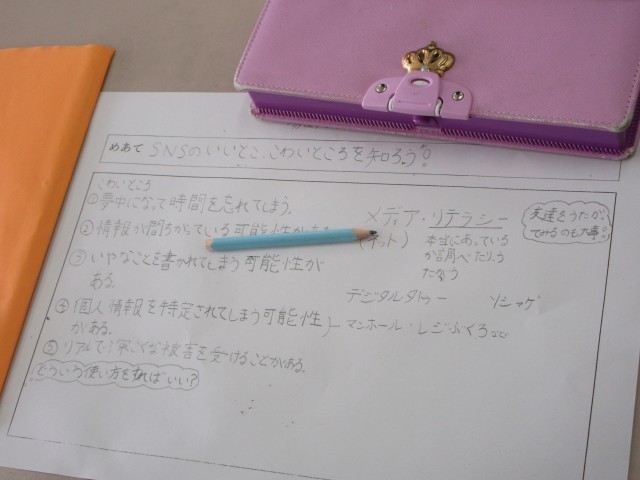 めあて SNSのいいとこ、こわいところを知ろう!
こわいところ
①夢中になって時間を忘れてしまう。
②情報が間ちがっている可能性がある
③いやなことを書かれてしまう可能性が
ある。
④個人情報を特定されてしまう可能性
がある。
⑤リアルで深こくな被害を受けることがある。
どういう使い方をすればいい?
メディア・リテラシー
(ネット)
本当にあっている
か調べたりう
たがう
友達をうたが
てみるのも大事!
デジタルタトゥー ソシャゲ
マンホール・レジぶくろなど